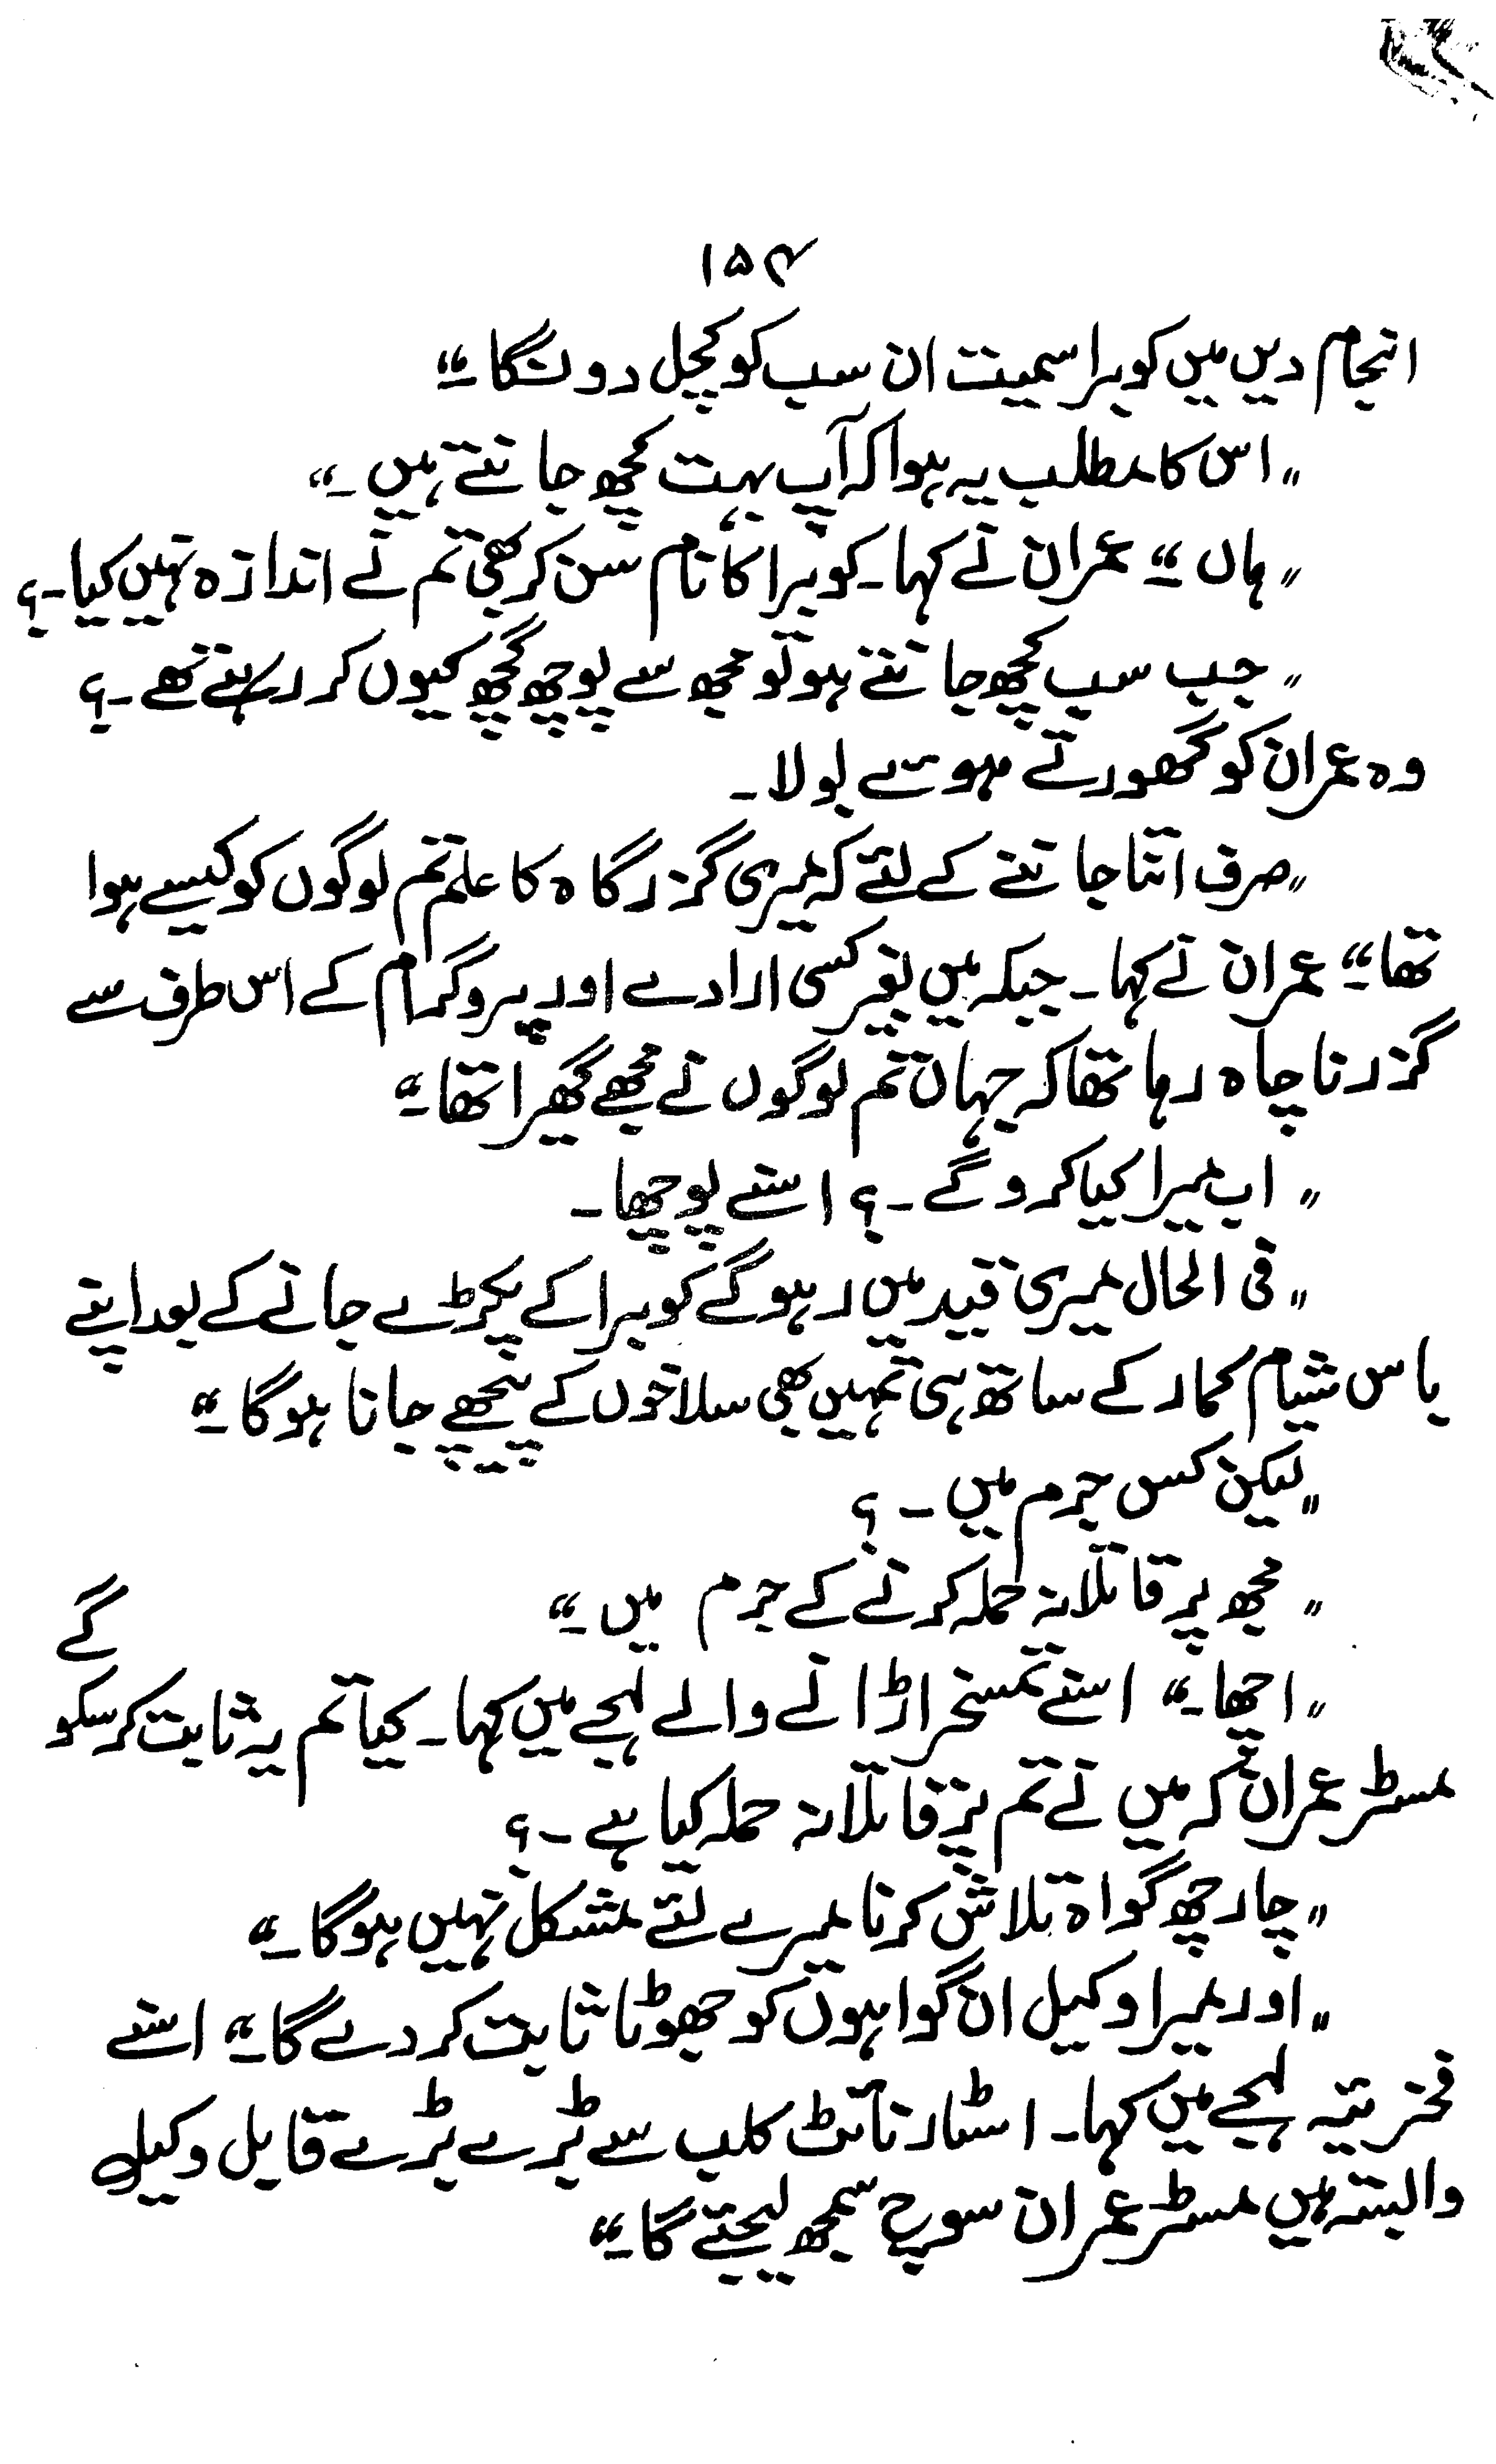 ۱۵۴
انجام دیں میں کوبرا سمیت ان سب کو کچل دونگا۔“
”اس کا مطلب یہ ہوا کہ آپ بہت کچھ جانتے ہیں۔“
”ہاں“ عمران نے کہا۔ کوبرا کا نام سن کر بھی تم نے اندازہ نہیں کیا۔؟
”جب سب کچھ جانتے ہو تو مجھ سے پوچھ گچھ کیوں کر رہے تھے۔؟
وہ عمران کو گھورتے ہوئے بولا۔
”صرف اتنا جاننے کے لئے کہ میری گزرگاہ کا علم تم لوگوں کو کیسے ہوا
تھا“ عمران نے کہا۔ جبکہ میں بغیر کسی ارادے اور پروگرام کے اس طرف سے
گزرنا چاہ رہا تھا کہ جہاں تم لوگوں نے مجھے گھیرا تھا۔“
”اب میرا کیا کرو گے۔؟ اسنے پوچھا۔
”فی الحال میری قید میں رہو گے کوبرا کے پکڑے جانے کے بعد اپنے
باس شیام کمار کے ساتھ ہی تمہیں بھی سلاخوں کے پیچھے جانا ہوگا۔“
”لیکن کس جرم میں۔؟
”مجھ پر قاتلانہ حملہ کرنے کے جرم میں۔“
”اچھا۔“ اسنے تمسخر اڑانے والے لہجے میں کہا۔ کیا تم یہ ثابت کر سکو گے
مسٹر عمران کہ میں نے تم پر قاتلانہ حملہ کیا ہے۔؟
”چار چھ گواہ تلاش کرنا میرے لئے مشکل نہیں ہوگا۔“
”اور میرا وکیل ان گواہوں کو جھوٹا ثابت کر دے گا۔“ اسنے
فخریئیہ لہجے میں کہا۔ اسٹار نائٹ کلب سے بڑے بڑے قابل وکیل
وابستہ ہیں مسٹر عمران سوچ سمجھ لیجئے گا۔“